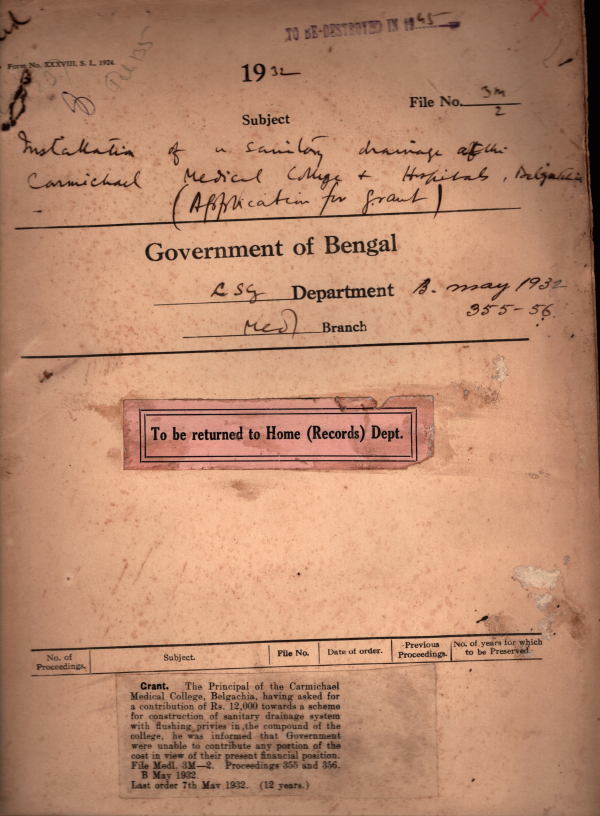 TO BE DESTROYED IN 1945
Form No. XXXVIII. S. L., 1924.
1932
File No. 3M/2
Subject
Installation of a sanitary drainage at the
Carmichael Medical College & Hospitals, Belgachia
(Application for grant)
Government of Bengal
LSG Department B. May 1932
355-56.
Medl Branch
To be returned to Home (Records) Dept.
No. of Proceedings. Subject. File No. Date of order. Previous Proceedings. No. of years for which to be Preserved
Grant. The Principal of the Carmichael
Medical College, Belgachia, having asked for
a contribution of Rs. 12,000 towards a scheme
for construction of sanitary drainage system
with flushing privies in the compound of the
college, he was informed that Government
were unable to contribute any portion of the
cost in view of their present financial position.
File Medl. 3M—2. Proceedings 355 and 356.
B May 1932.
Last order 7th May 1932. (12 years.)